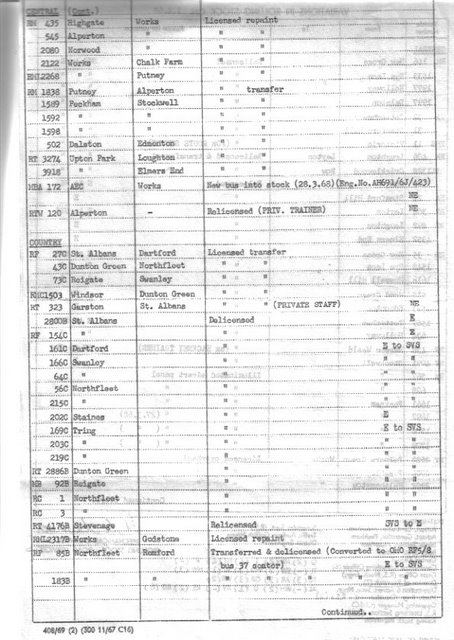 CENTRAL (Cont.)
RM 435 Highgate Works Licensed repaint
545 Alperton " " "
2080 Norwood " " "
2122 Works Chalk Farm " "
RML2268 " Putney " "
RM 1838 Putney Alperton " transfer
1589 Peckham Stockwell " "
1592 " " " "
1598 " " " "
502 Dalston Edmonton " "
RT 3274 Upton Park Loughton " "
3918 " Elmers End " "
MBA 172 AEC Works New bus into stock (28.3.68)(Eng.No.AH691/6J/423) NE
RTW 120 Alperton - Relicensed (PRIV. TRAINER) NE
COUNTRY
RF 27C St. Albans Dartford Licensed transfer
43C Dunton Green Northfleet " "
73C Reigate Swanley " "
RMC1503 Windsor Dunton Green " "
RT 323 Garston St. Albans " " (PRIVATE STAFF) NE
2800B St. Albans Delicensed E
RF 154C " " E
161C Dartford " E to SVS
166C Swanley " " "
64C " " " "
56C Northfleet " " "
215C " " " "
202C Staines " E
169C Tring " E to SVS
203C " " "
219C " " "
RT 2886B Dunton Green " "
MB 92B Reigate " "
RC 1 Northfleet " "
RC 3 " " "
RT 4176B Stevenage Relicensed SVS to E
RML2317B Works Godstone Licensed repaint
RF 85B Northfleet Romford Transferred & delicensed (Converted to OMO RF5/8
bus 37 seater) E to SVS
183B " " " " " " "
Continued..
408/69 (2) (300 11/67 C16)